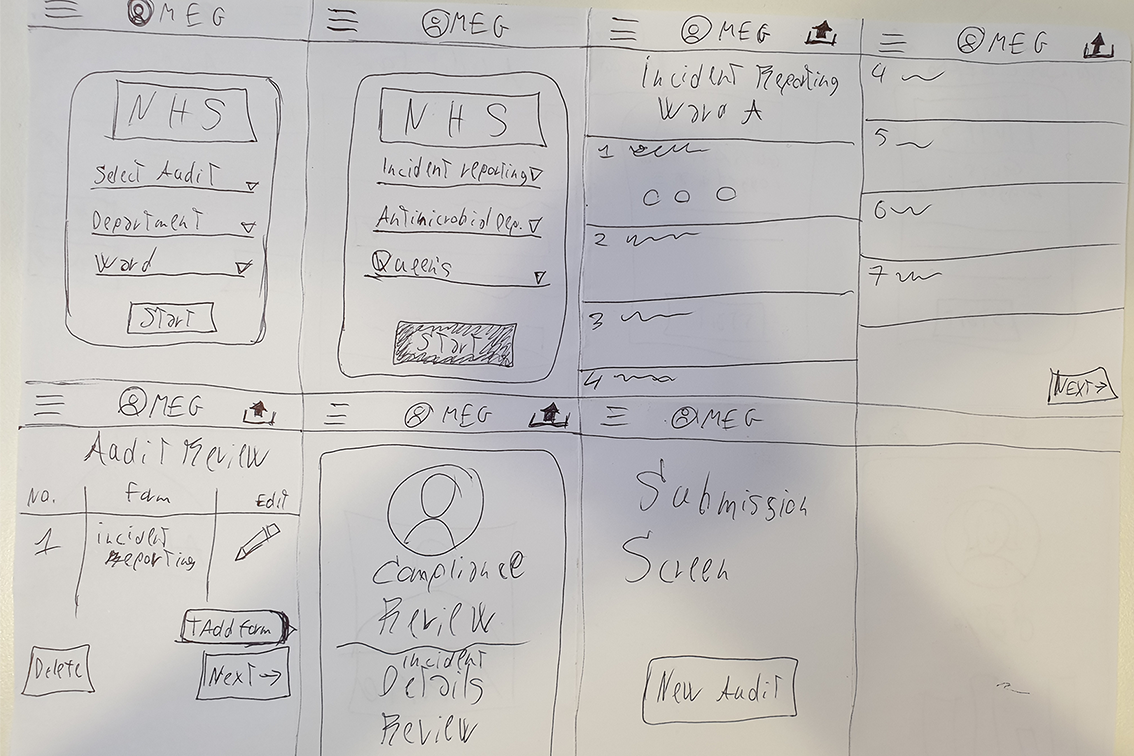 MEG
NHS
Select Audit
Department
Ward
Start
MEG
NHS
Incident reporting
Antimicrobial Dep.
Queen's
Start
MEG
Incident Reporting
Ward A
1
2
3
4
MEG
4
5
6
7
Next→
MEG
Audit Review
No. Form Edit
1 incident
Reporting
+Add form
Delete Next→
MEG
Compliance
Review
incident
Details
Review
MEG
Submission
Screen
New Audit